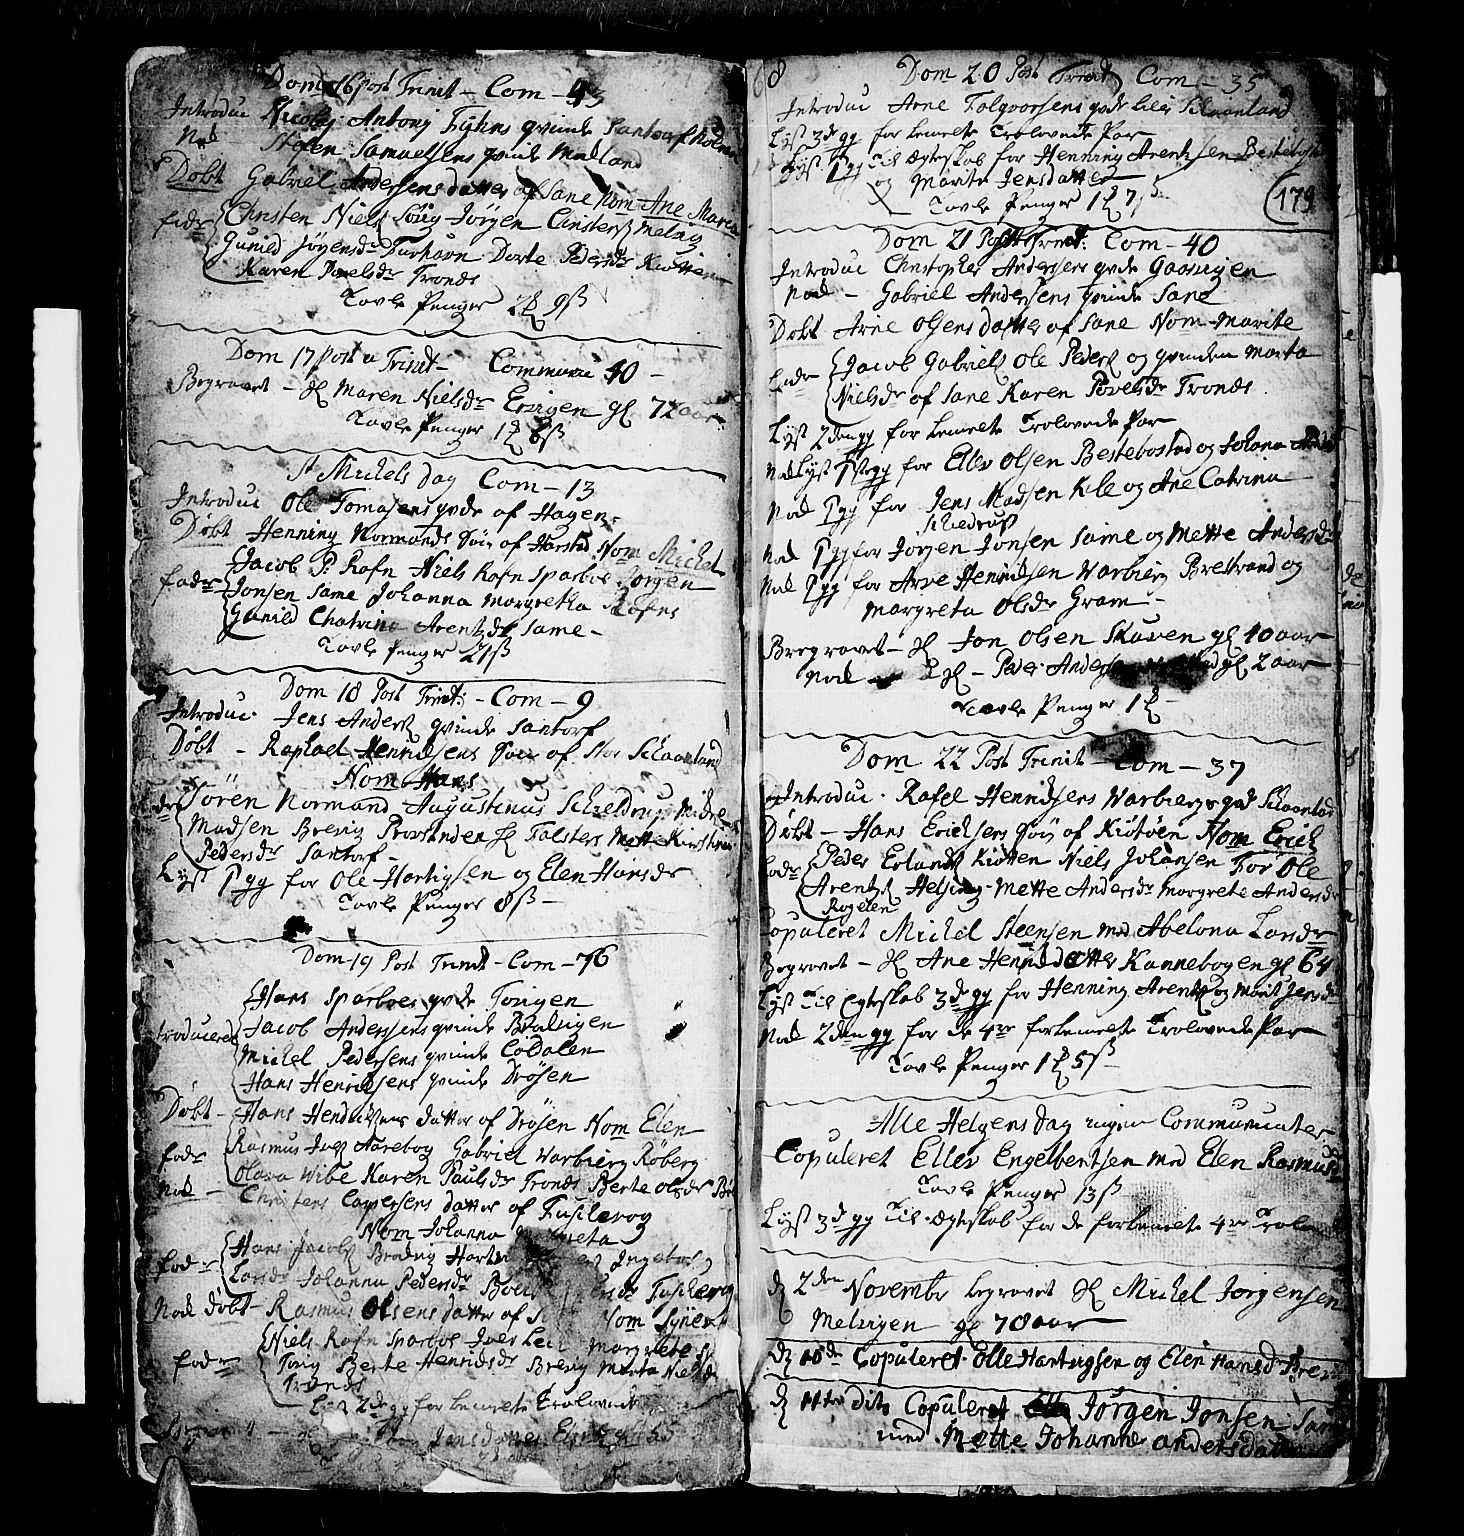 Dom 16 post Trinit - Com - 43
Introduc Nicolaj Antonij Tyhns qvinde Santorf Kolen
Nod Stefen Samuelsens qvinde Melland
Døbt Gabriel Andersens datter af Sane Nom - Ane Maria
fadr Christen Niels Søng Jørgen Christens Melvig
Gunild Jøgensdr Durhavn Dorte Pedersdr Kiøtten
Karen Povelsdr Tronds
Tavle Penger 2 9ß
Dom 17 post a Trinit - Commun 40 -
Begravet - Maren Nielsdr Ervigen gl 72 aar
Tavle Penger 1 6ß
St Michels Dag Com - 13
Introduc Ole Tomasens qvde af Hagen
Døbt Henning Normands Søn af Harstad Nom Michel
fadr Jacob P: Rafn Niels Rafn Sparboe Jørgen
Jonsen Same Johanna Margretha Rafns
Gunild Chatrina Arentzdr Same -
Tavle Penger 21ß
Dom 18 Post Trinit: - Com - 9
Introduc. Jens Anders qvinde Santorf
Døbt - Raphael Henrichsens Søn af Stor Skaanland
Nom Hans
Sören Normand Augustinus Schieldrup
Madsen Brevig Provianden Tolsters Mette Kirstina
Pedersdr Santorf -
Lyst 1 gg for Ole Hartvigsen og Elen Hansdr
Tavle Penger 8ß -
Dom 19 Post Trinit - Com - 76
Hans Sparboes qvde Tongen
Introduceret Jacob Andersens qvinde Bredvigen
Michel Pedersens qvinde Lødalen
Hans Henrichsens qvinde Drøsen
Døbt - Hans Hendrichsens datter af Drøsen Nom Elen
fadr Rasmus Aarebog Gabriel Warbierg Røberg
Olava Wibe Karen Paulsdr Tronds Berte Olsdr
Nod - Christens Caspersens datter af Fuschevog
Nom Johanna
fadr Hans Jacobs Bredvig
Larsdr Johanna Pedersdr Fuschevog
Nod døbt - Rasmus Olsens datter af Nom Synev
fadr Niels Rafn Sparboe Iver Margrete
Tong Berte Henrichsdr Brevig Marta Nielsdr
Tronds
Lyst 2de gg for bemelte Trolovede
8
Dom 20 Post Trinit Com - 35
Introduc Arne Tolgvorsens qvde Skaanland
Lyst 3de gg for bemelte Trolovede Par
Lyst 1 gg Til Egteskab for Henning Arentzen
og Marite Jensdatter
Tavle Penger 1 7ß
179
Dom 21 Post Trinit: Com - 40
Introduc Christopher Andersens qvde Gaasvigen
Nod - Gabriel Andersens qvinde Sane
Døbt Arne Olsens datter af Sane Nom - Marite
fadr Jacob Gabriels Ole Peders og qvinden Marta
Nielsdr af Sane Karen Povelsdr Tronds
Lyst 2den gg for bemelte Trolovede Par
Nod Lyst 1ste gg for Ellev Olsen Bestebostad og Johana
Nod 1 gg for Jens Madsen Kile og Ane Catrina
Schiedrup
Nod 1 gg for Jørgen Jonsen Same og Mette Andersdr
Nod 1 gg for Arve Henrichsen Warbierg Brestrand og
Margreta Olsdr Gram -
Begravet - Jon Olsen Skaven gl 40 aar
Nod Peder Anders gl 2 aar
Tavle Penger 1 -
Dom 22 Post Trinit - Com - 37
Introduc. Rafel Henrichsens Warbierg qvd Skaanland
Døbt - Hans Erichsens Søn af Kiøtøen Nom Erich
fadr Peder Erlands Kiøtten Niels Johansen Før Ole
Arentz Helsing Mette Andersdr Margrete Andersdr
Rogelen
Copuleret Michel Steensen med Abelona Larsdr
Begravet - Ane Henrichdatter Kannebogen gl 64
Lyst Til Egteskab 3de gg for Henning Arentz og Marit Jensdr
Nod 2den gg for de 4re forbemelte Trolovede Par
Tavle Penger 1 5ß -
Alle Helgens Dag ingen Communicanter
Copuleret Ellev Engelbertsen med Elen Rasmusdr
Tavle Penger 13ß
Lyst 3de gg Til Egteskab for de forbemelte 4re
d 2den Novembr begravet Michel Jørgensen
Melvigen gl 78 aar
d 10de Copuleret Olle Hartvigsen og Elen Hansd
d 11te dito Copuleret Jørgen Jonsen
med Mette Johanne